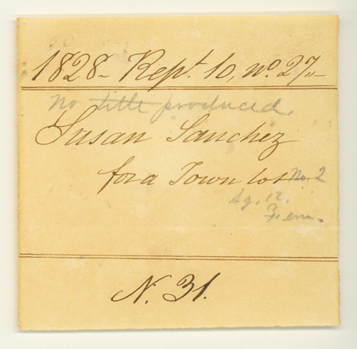 1828 - Rept. 10, no. 27 -
No title produced.
Susan Sanchez
for a Town lot No. 2
Sq. 12.
Fern.
N. 31.